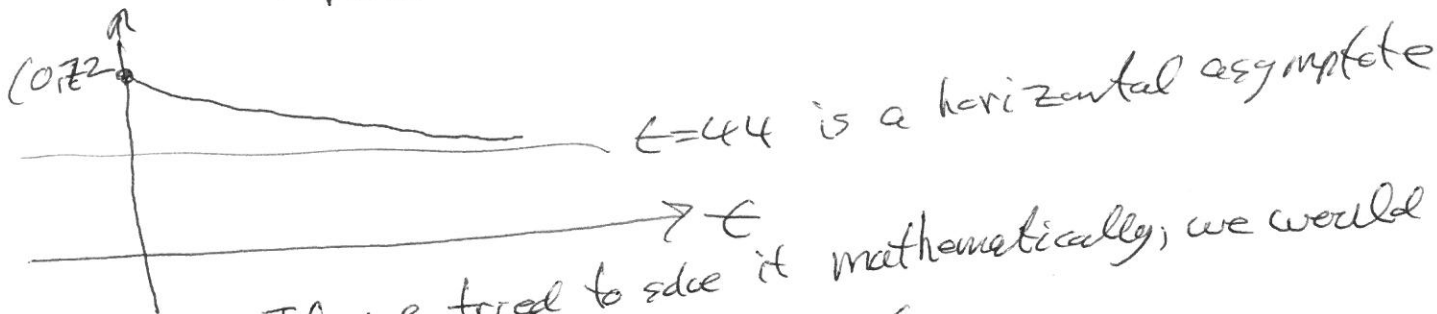 (0,72
t=44 is a horizontal asymptote
t
If we tried to solve it mathematically, we would